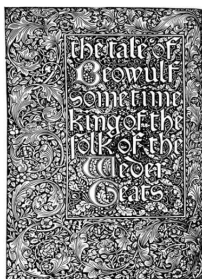 the tale of
Beowulf
sometime
king of the
folk of the
Weder
Geats